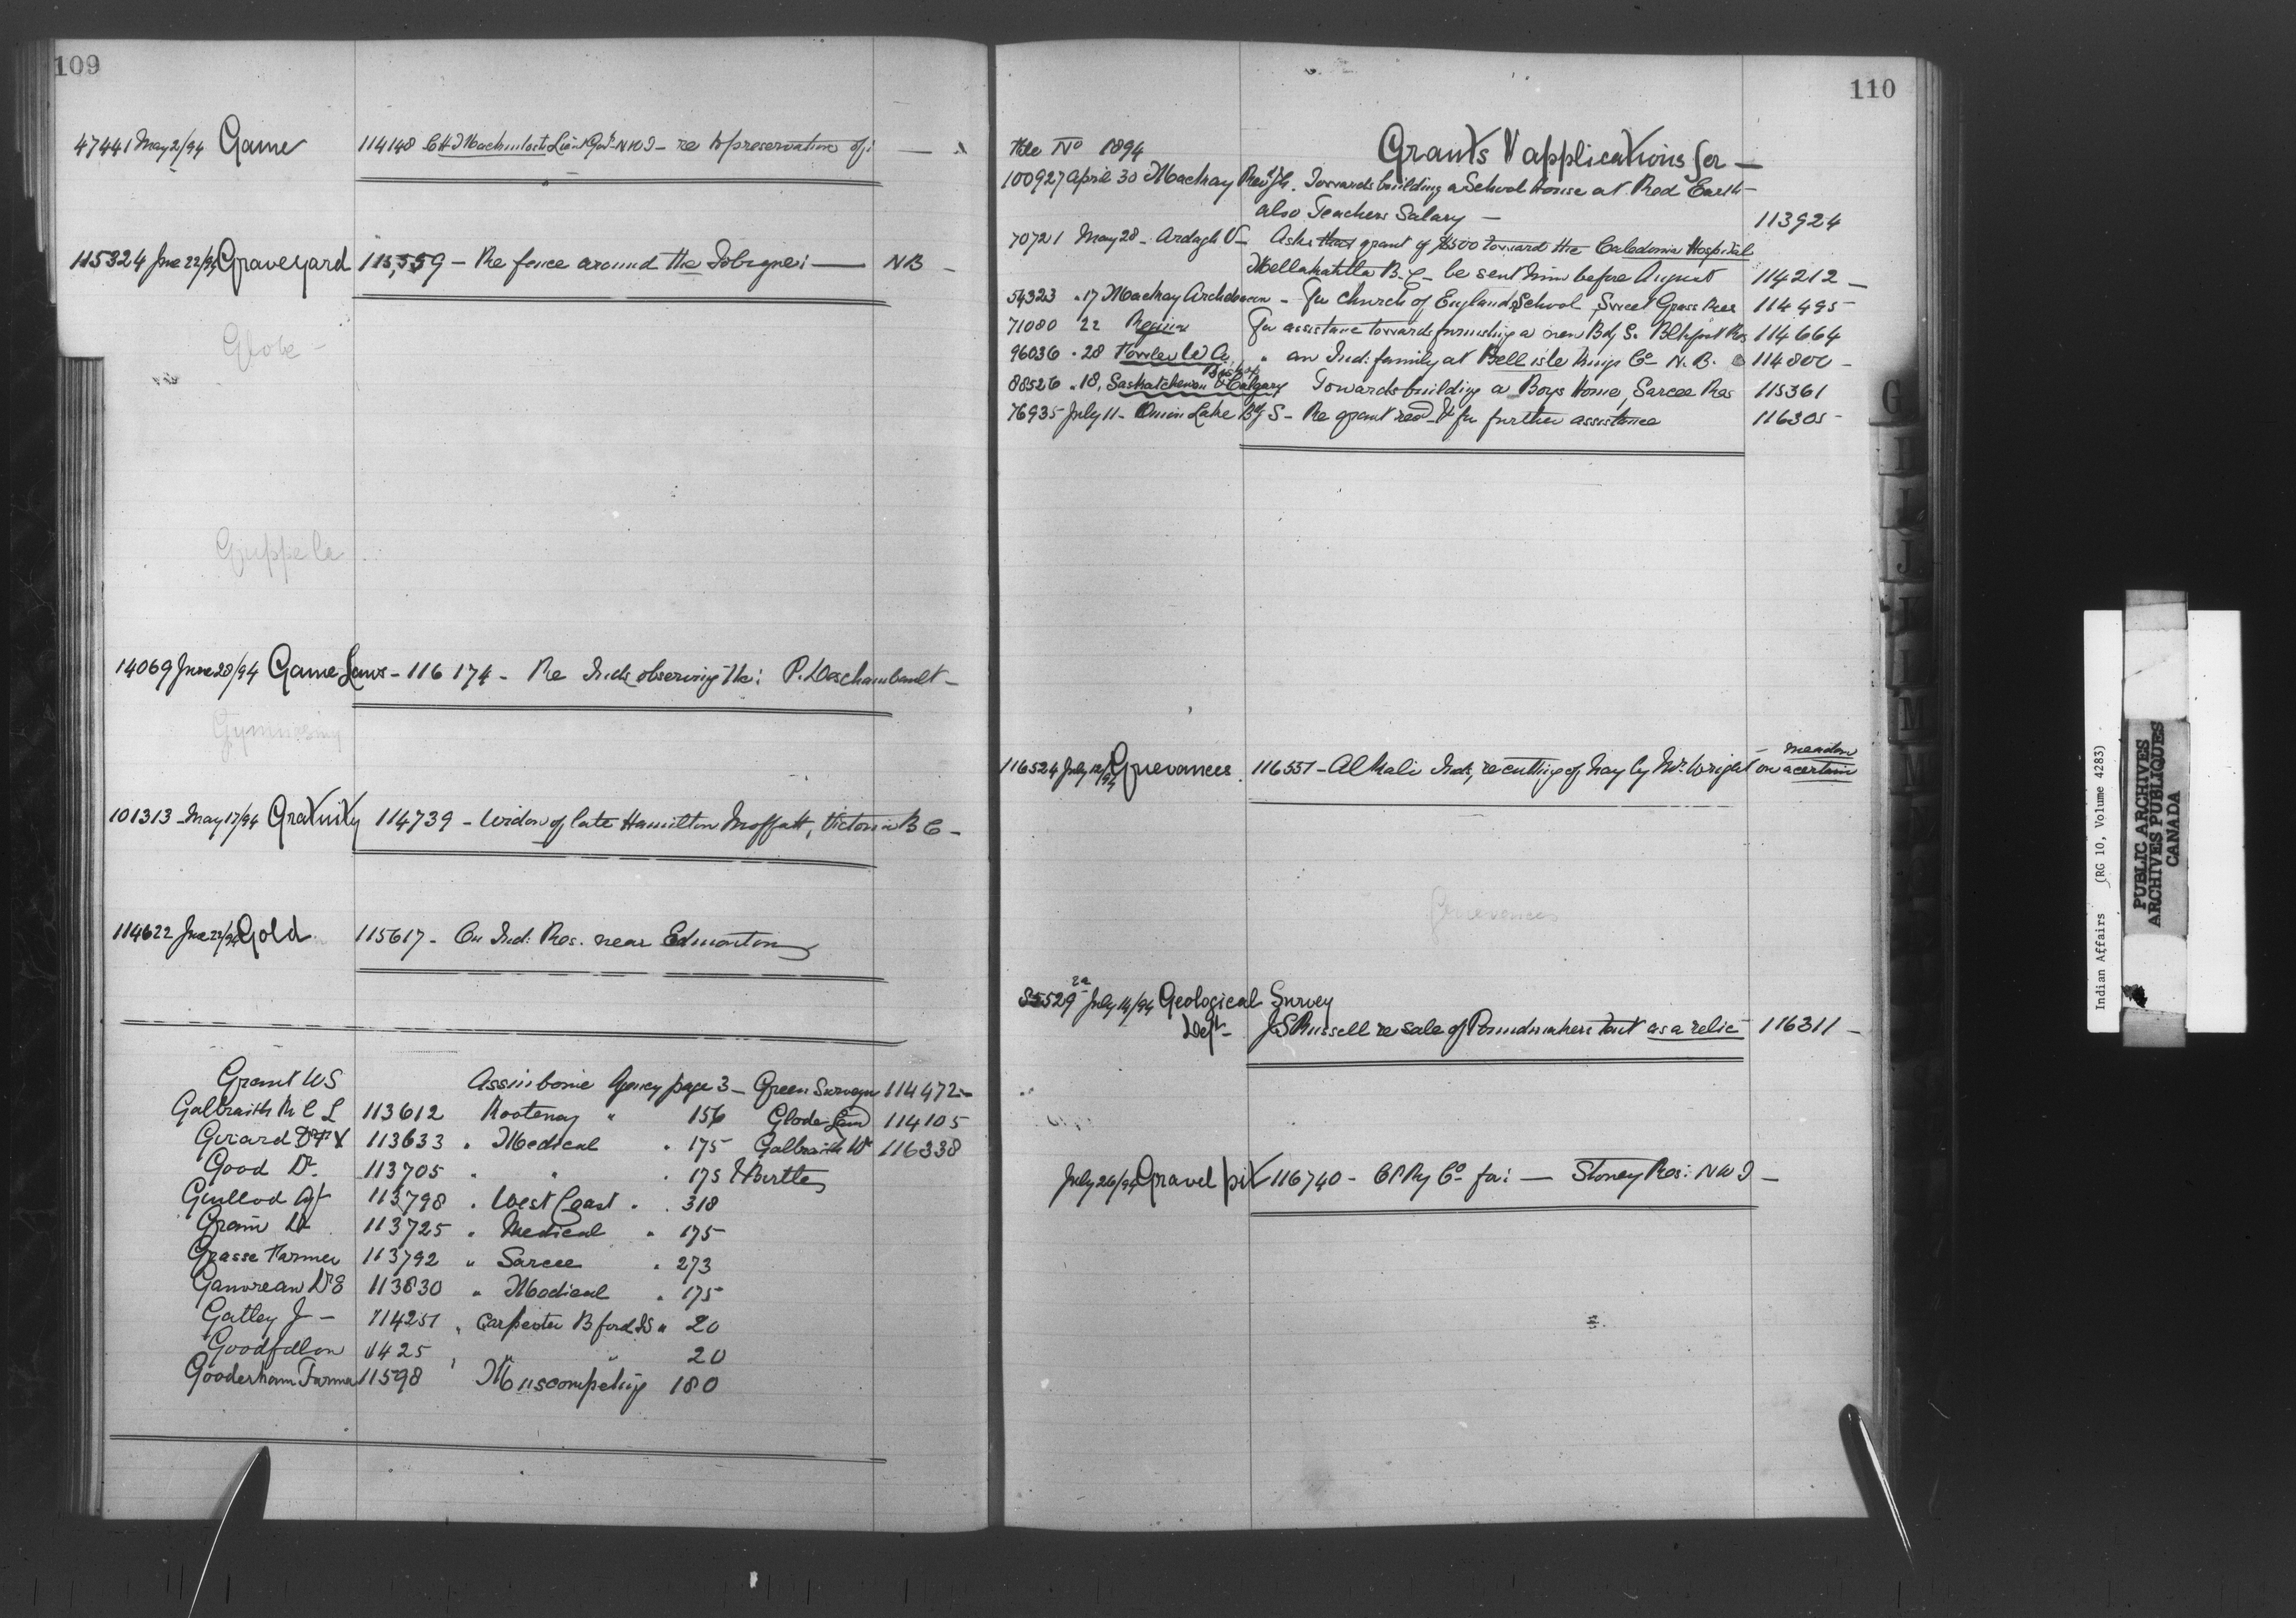 109
47441 May 2/94 Game 114148 C H Mackintosh Lieut Gov. N W T - re preservation of:
115324 June 22/94 Graveyard 115,559 - Re fence around the Tobique: — NB -
Globe -
14069 June 28/94 Game Laws - 116174 - Re Inds observing the: P. Deschambault -
101313 - May 17/94 Gratuity 114739 - Widow of late Hamilton Moffatt, Victoria B C -
114622 June 22/94 Gold 115617 - On Ind: Res. near Edmonton
Grant W S Assiniboine Agency page 3 - Green Surveyor 114472 -
Galbraith R C L 113612 Kootenay " 156 Glode 114105
Girard 113633 " Medical " 175 Galbraith W 116338
Good Dr. 113705 " " " 175 Birtle
Guillod Agt 113798 " West Coast " 318
Grain Dr 113725 " Medical " 175
Grasse Farmer 113792 " Sarcee " 273
Gauvreau Dr E 113830 " Medical " 175
Gatley J - 114251 " Carpenter B ford IS " 20
11425 " " 20
Gooderham Farmer 11598 " Muscowpetung 180
110
File No 1894 Grants & applications for —
100927 April 30 Mackay Rev J H. Towards building a School house at Red Earth -
also Teachers Salary - 113924
70721 May 28 - Ardagh V - Asks that grant of $500 toward the Caledonia Hospital
Metlakahtla B.C - be sent him before August 114212 -
54323 " 17 Mackay Archdeacon - For Church of England School, Sweet Grass Res 114495 -
71080 22 Regina For assistance towards furnishing a new Bdg S. Blkfoot Res 114664
96036 " 28 Fowler W A. " an Ind: family at Bellisle Kings Co - N. B. 114800 -
Bishop
88526 " 18, Saskatchewan & Calgary Towards building a Boys Home, Sarcee Res 115361
76935 July 11 - Onion Lake Bdg S - Re grant recd & for further assistance 116305 -
meadow
116524 July 12/94 Grievances 116551 - Alkali Inds, re cutting of hay by Mr. Wright on a certain
Grievances
2a
85529 July 14/94 Geological Survey
Dept - J S Russell re sale of Poundmakers tent as a relic 116311 -
July 26/94 Gravel pit 116740 - C P Ry Co for: — Stoney Res: N W T -
G
I
J
L
M
Indian Affairs (RG 10, Volume 4283)
PUBLIC ARCHIVES
ARCHIVES PUBLIQUES
CANADA